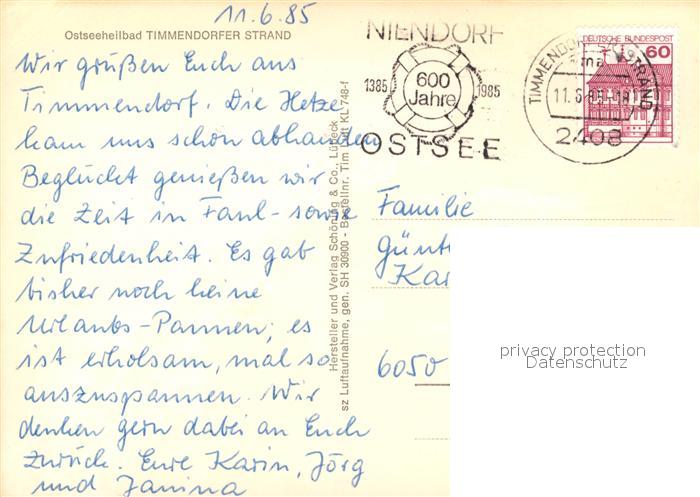 11.6.85
Ostseeheilbad TIMMENDORFER STRAND
Wir grüßen Euch aus
Timmendorf. Die Hetze
kam uns schon abhanden
Beglückt genießen wir
die Zeit in Faul- sowie
Zufriedenheit. Es gab
bisher noch keine
Urlaubs-Pannen; es
ist erholsam, mal so
auszuspannen. Wir
denken gern dabei an Euch
zurück. Eure Karin, Jörg
und Janina
Hersteller und Verlag Schöning & Co., Lübeck
sz Luftaufnahme, gen. SH 30900 - Bestellnr. Tim Luft KL 748-f
NIENDORF
1385 600 1985
Jahre
OSTSEE
TIMMENDORFER STRAND
11.6.85-18
2408
DEUTSCHE BUNDESPOST
60
Familie
Günt
Kar
6050
privacy protection
Datenschutz